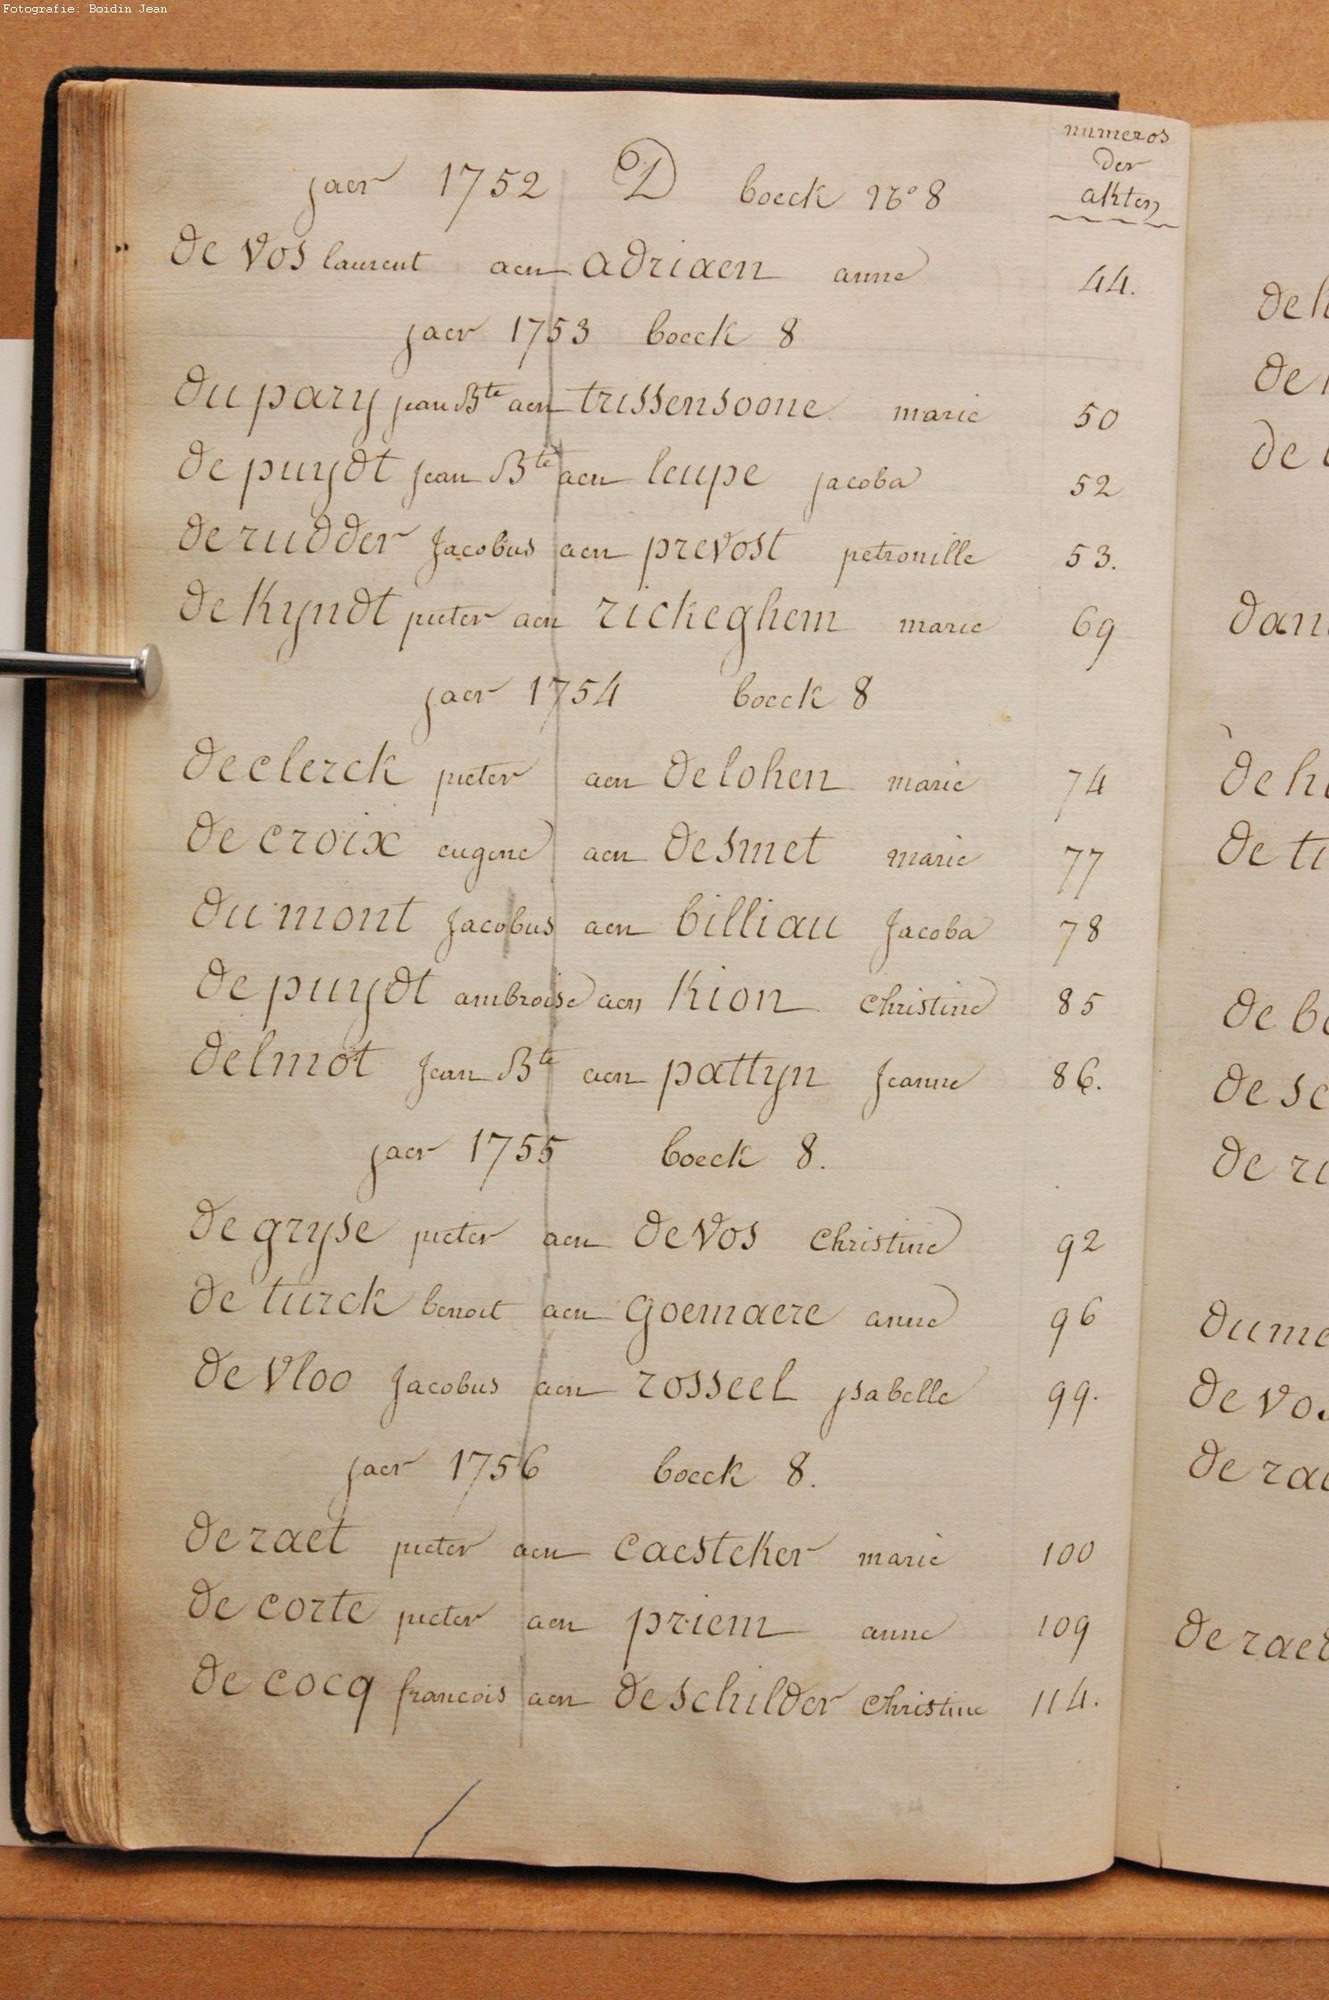 Fotografie: Boidin Jean
numeros
der
akten
jaer 1752 D boeck N° 8
de vos laurent aen adriaen anne 44.
jaer 1753 boeck 8
du pary jean Bte aen trissensoone marie 50
de puydt jean Bte aen leupe jacoba 52
de rudder Jacobus aen prevost petronille 53.
de Kyndt pieter aen rickeghem marie 69
jaer 1754 boeck 8
declerck pieter aen delohen marie 74
de croix eugene aen desmet marie 77
du mont Jacobus aen billiau Jacoba 78
de puydt ambroise aen Kion christine 85
delmot Jean Bte aen pattyn Jeanne 86.
jaer 1755 boeck 8.
de gryse pieter aen de vos christine 92
de turck benoit aen goemaere anne 96
de vloo Jacobus aen rosseel ysabelle 99.
jaer 1756 boeck 8.
de raet pieter aen caesteker marie 100
de corte pieter aen priem anne 109
de cocq francois aen de schilder christine 114.
de
de
de
dan
de h
de t
de b
de sc
de r
dum
de vos
de ra
de raed